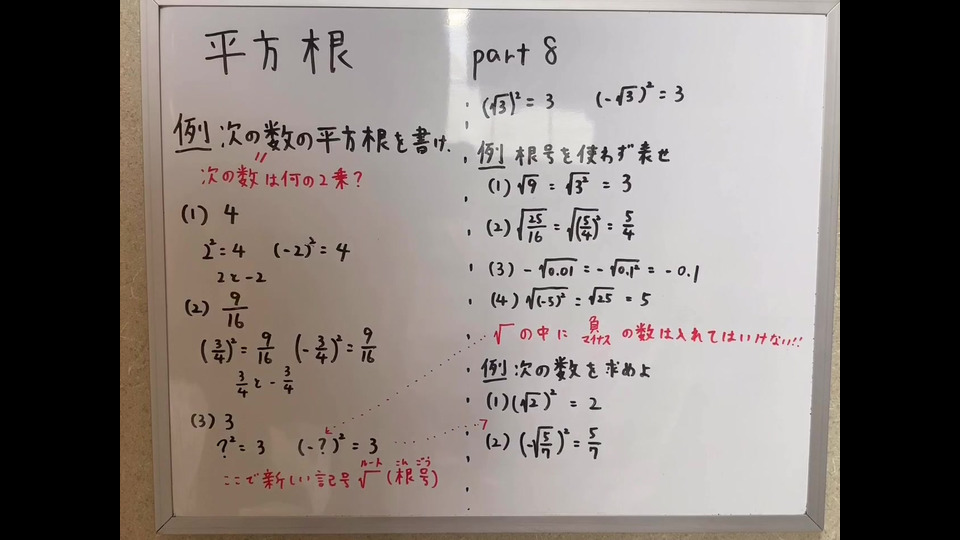 平方根 part 8
例 次の数の平方根を書け.
次の数は何の2乗?
(1) 4
2² = 4 (-2)² = 4
2と-2
(2) 9/16
(3/4)² = 9/16 (-3/4)² = 9/16
3/4と-3/4
(3) 3
?² = 3 (-?)² = 3
ここで新しい記号 √(根号)
ルート こんごう
(√3)² = 3 (-√3)² = 3
例 根号を使わず表せ
(1) √9 = √3² = 3
(2) √25/16 = √(5/4)² = 5/4
(3) -√0.01 = -√0.1² = -0.1
(4) √(-5)² = √25 = 5
√の中に負の数は入れてはいけない!!
マイナス
例 次の数を求めよ
(1) (√2)² = 2
(2) (-√5/7)² = 5/7